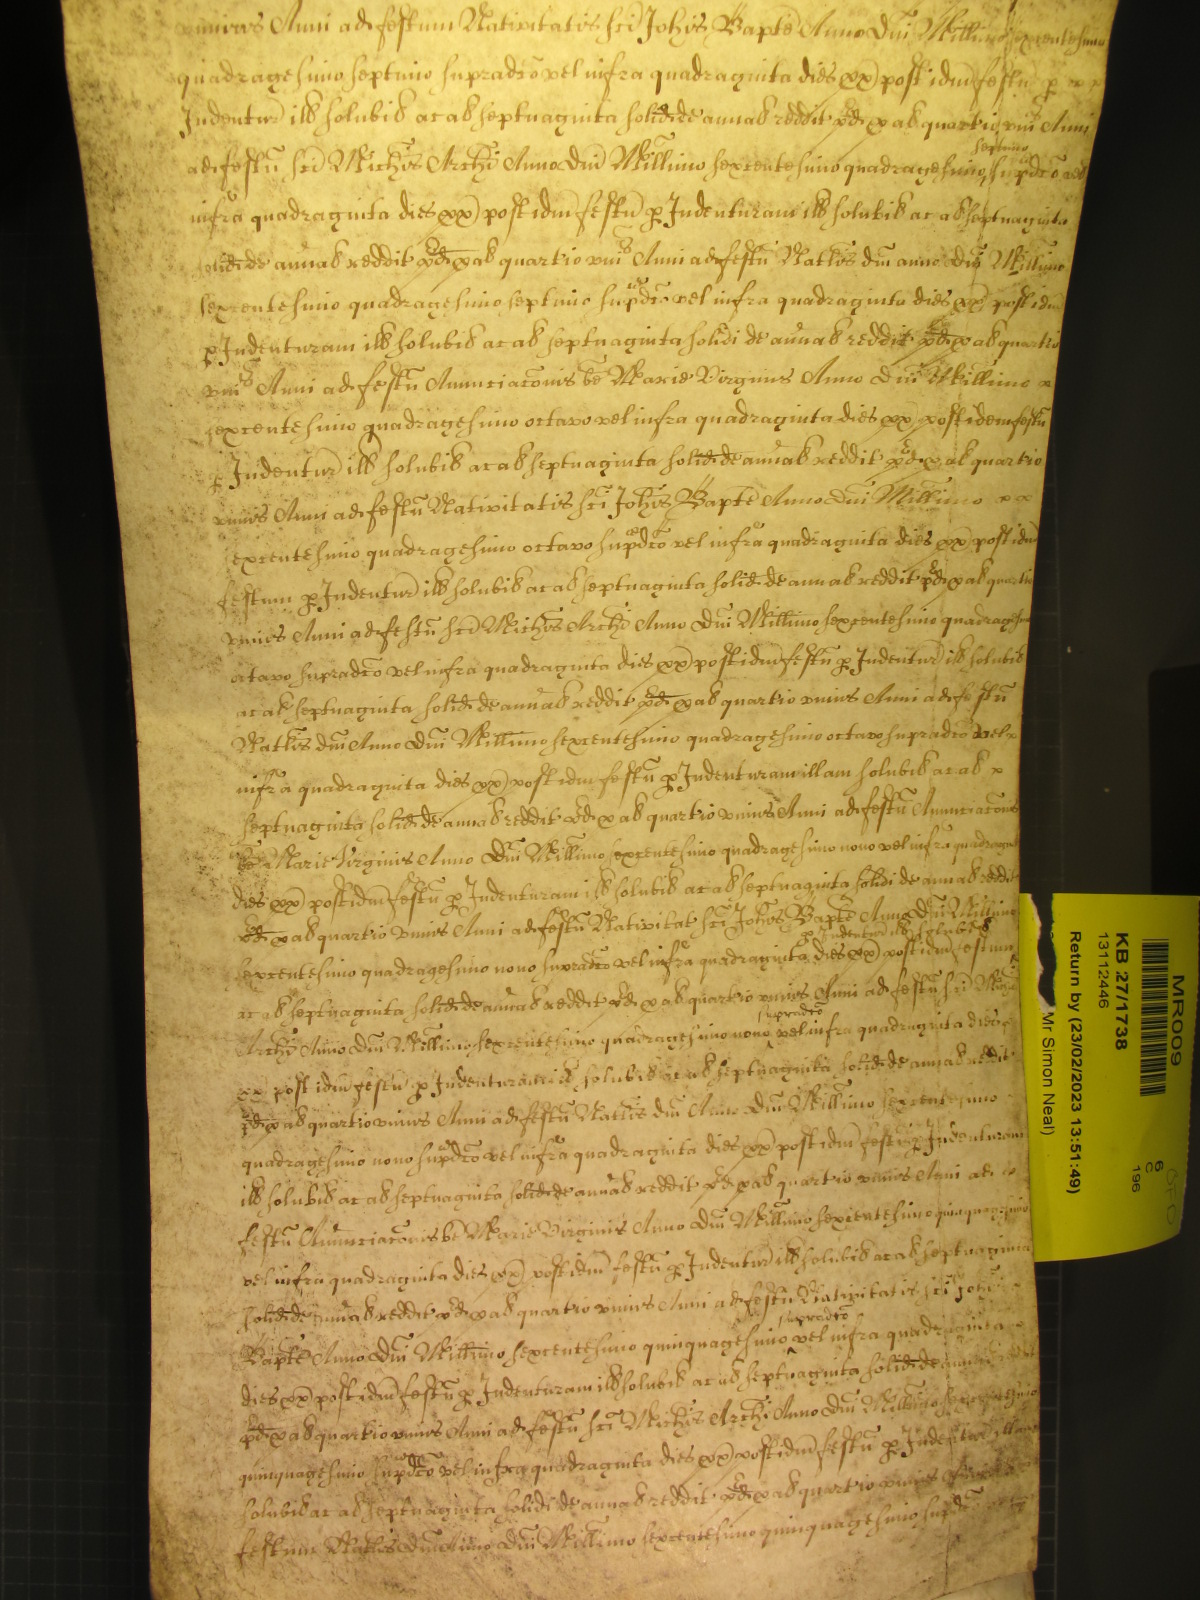 unius Anni ad festum Nativitatis Sci Johis Bapte Anno Dni Millimo sexcentesimo
quadragesimo septimo supradco vel infra quadraginta dies xx) post idm festu p
Indentur ill solubil ac ab septuaginta solid de annual reddit pd p ab quartio uni Anni
ad festu sci Michis Archi Anno Dni Millimo sexcentesimo quadragesimo septimo supdco vel
infra quadraginta dies xx) post idm festu p Indenturam ill solubil ac ab septuaginta
solid de annual reddit pd p ab quartio uni Anni ad festu Natlis dni anno Dni Millimo
sexcentesimo quadragesimo septimo supdco vel infra quadraginta dies xx post idm
p Indenturam ill solubil ac ab septuaginta solidi de annual reddit pd p ab quartio
uni Anni ad festu Annunciacois be Marie Virginis Anno Dni Millimo x
sexcentesimo quadragesimo octavo vel infra quadraginta dies xx post idem festu
p Indentur ill solubil ac ab septuaginta solid de annual reddit pd p ab quartio
unius Anni ad festu Nativitatis Sci Johis Bapte Anno Dni Millimo x x
sexcentesimo quadragesimo octavo supdco vel infra quadraginta dies xx) post idm
festum p Indentur ill solubil ac ab septuaginta solid de annual reddit pd p ab quartio
unius Anni ad festu sci Michis Archi Anno Dni Millimo sexcentesimo quadragesimo
octavo supradco vel infra quadraginta dies xx) post idm festu p Indentur ill solubil
ac ab septuaginta solid de annual reddit pd p ab quartio unius Anni ad festu
Natlis dni Anno Dni Millimo sexcentesimo quadragesimo octavo supradco vel x
infra quadraginta dies xx) post idm festu p Indenturam illam solubil ac ab x
septuaginta solid de annual reddit pd p ab quartio unius Anni ad festu Annunciacois
be Marie Virginis Anno Dni Millimo sexcentesimo quadragesimo nono vel infra quadragint
dies xx) post idm festu p Indenturam ill solubil ac ab septuaginta solidi de annual reddit
pd p ab quartio unius Anni ad festu Nativitat sci Johis Bapte Anno Dni Millimo
p Indentur ill solubil
sexcentesimo quadragesimo nono supradco vel infra quadraginta dies xx) post idm festum
ac ab septuaginta solid de annual reddit pd p ab quartio unius Anni ad festu sci Michis
Archi Anno Dni Millimo sexcentesimo quadragesimo nono supradco vel infra quadraginta dies
xx post idm festu p Indenturam ill solubil ac ab septuaginta solid de annual reddit
pd p ab quartio unius Anni ad festu Natlis dni Anno Dni Millimo sexcentesimo
quadragesimo nono supdco vel infra quadraginta dies xx post idm festu p Indenturam
ill solubil ac ab septuaginta solid de annual reddit pd p ab quartio unius Anni ad
festu Annunciacois be Marie Virginis Anno Dni Millimo sexcentesimo quinquagesimo
vel infra quadraginta dies xx) post idm festu p Indentur ill solubil ac ab septuaginta
solid de annual reddit pd p ab quartio unius Anni ad festu Nativitatis sci Johis
Bapte Anno Dni Millimo sexcentesimo quinquagesimo supradco vel infra quadraginta
dies xx) post idm festu p Indenturam ill solubil ac ab septuaginta solid de annual
pd p ab quartio unius Anni ad festu sci Michis Archi Anno Dni Millimo sexcentesimo
quinquagesimo supdco vel infra quadraginta dies xx) post idm festu p Indentur illam
solubil ac ab septuaginta solidi de annual reddit pd p ab quartio unius Anni ad
festum Natlis dni Anno Dni Millimo sexcentesimo quinquagesimo supdco
MR009
KB 27/1738
13112446
6
C
196
Return by (23/02/2023 13:51:49)
Mr Simon Neal)